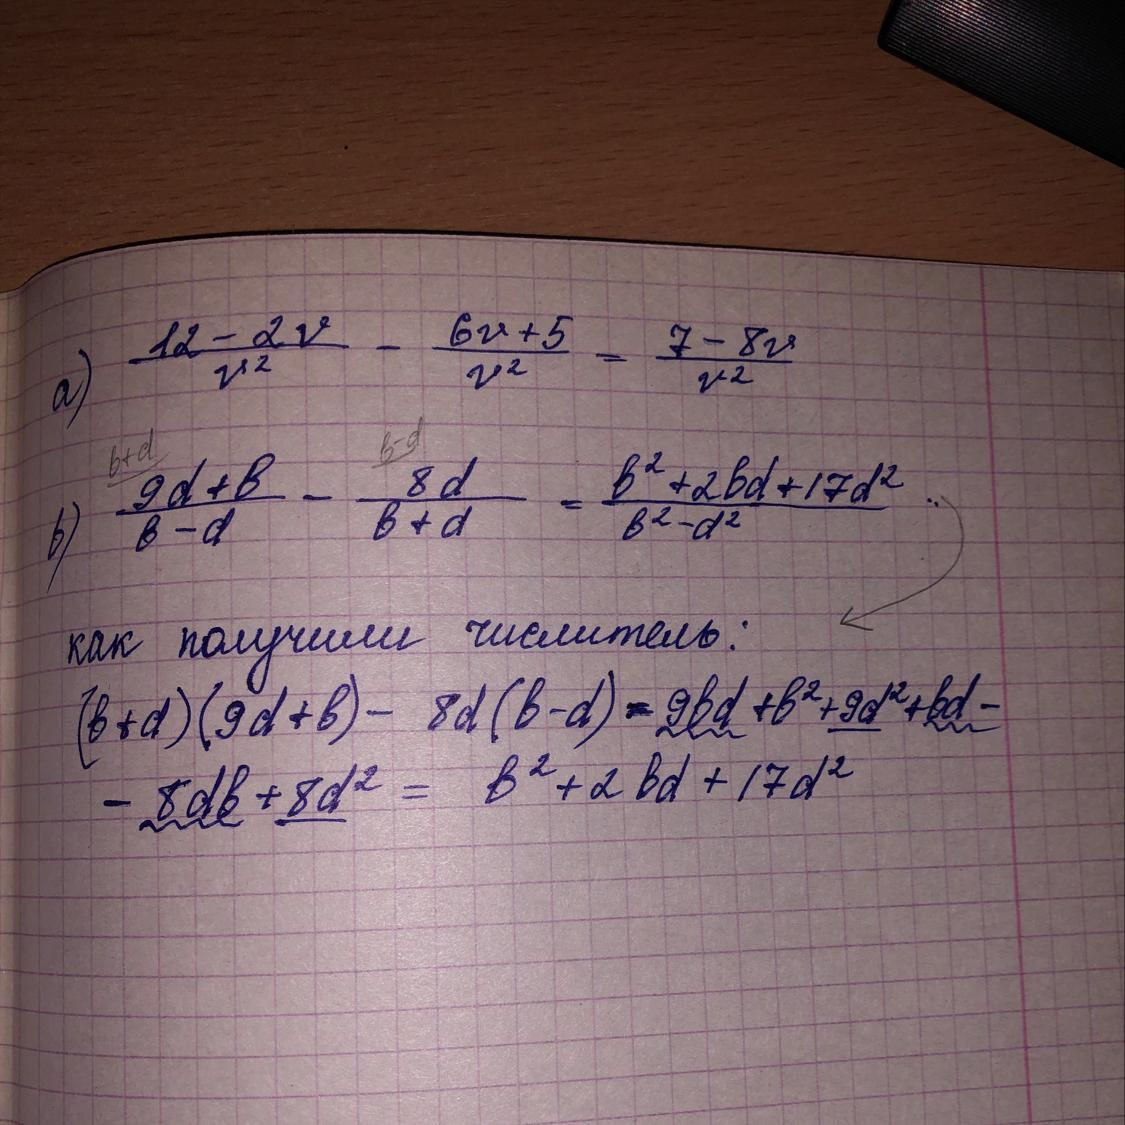 a) (12 - 2v)/v² - (6v + 5)/v² = (7 - 8v)/v²
b+d b-d
b) (9d + b)/(b - d) - 8d/(b + d) = (b² + 2bd + 17d²)/(b² - d²) .
как получили числитель:
(b+d)(9d+b) - 8d(b-d) = 9bd + b² + 9d² + bd -
- 8db + 8d² = b² + 2bd + 17d²